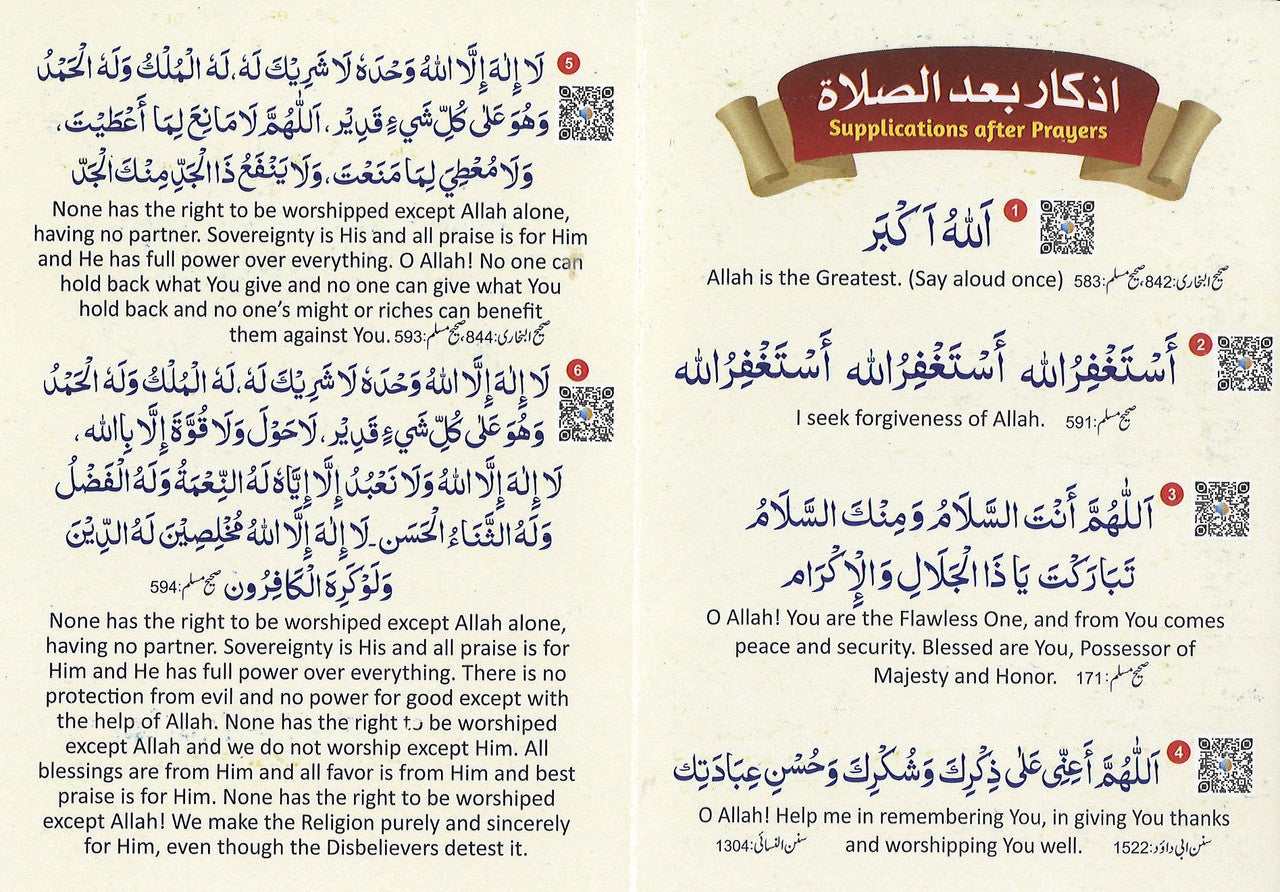 اذكار بعد الصلاة
Supplications after Prayers
1 اَللّٰهُ اَكْبَر
Allah is the Greatest. (Say aloud once) صحیح البخاری:842، صحیح مسلم:583
2 أَسْتَغْفِرُ الله أَسْتَغْفِرُ الله أَسْتَغْفِرُ الله
I seek forgiveness of Allah. صحیح مسلم:591
3 اَللّٰهُمَّ أَنْتَ السَّلَامُ وَمِنْكَ السَّلَامُ
تَبَارَكْتَ يَا ذَا الْجَلَالِ وَالْإِكْرَام
O Allah! You are the Flawless One, and from You comes
peace and security. Blessed are You, Possessor of
Majesty and Honor. صحیح مسلم:171
4 اَللّٰهُمَّ أَعِنِّى عَلٰى ذِكْرِكَ وَشُكْرِكَ وَحُسْنِ عِبَادَتِك
O Allah! Help me in remembering You, in giving You thanks
and worshipping You well. سنن ابی داؤد:1522 سنن النسائی:1304
5 لَا إِلٰهَ إِلَّا اللهُ وَحْدَهٗ لَا شَرِيْكَ لَهٗ، لَهُ الْمُلْكُ وَلَهُ الْحَمْدُ
وَهُوَ عَلٰى كُلِّ شَيْءٍ قَدِيْر، اَللّٰهُمَّ لَا مَانِعَ لِمَا أَعْطَيْتَ،
وَلَا مُعْطِيَ لِمَا مَنَعْتَ، وَلَا يَنْفَعُ ذَا الْجَدِّ مِنْكَ الْجَدّ
None has the right to be worshipped except Allah alone,
having no partner. Sovereignty is His and all praise is for Him
and He has full power over everything. O Allah! No one can
hold back what You give and no one can give what You
hold back and no one’s might or riches can benefit
them against You. صحیح البخاری:844، صحیح مسلم:593
6 لَا إِلٰهَ إِلَّا اللهُ وَحْدَهٗ لَا شَرِيْكَ لَهٗ، لَهُ الْمُلْكُ وَلَهُ الْحَمْدُ
وَهُوَ عَلٰى كُلِّ شَيْءٍ قَدِيْر، لَا حَوْلَ وَلَا قُوَّةَ إِلَّا بِالله،
لَا إِلٰهَ إِلَّا اللهُ وَلَا نَعْبُدُ إِلَّا إِيَّاهُ لَهُ النِّعْمَةُ وَلَهُ الْفَضْلُ
وَلَهُ الثَّنَاءُ الْحَسَن۔ لَا إِلٰهَ إِلَّا اللهُ مُخْلِصِيْنَ لَهُ الدِّيْنَ
وَلَوْ كَرِهَ الْكَافِرُون صحیح مسلم:594
None has the right to be worshiped except Allah alone,
having no partner. Sovereignty is His and all praise is for
Him and He has full power over everything. There is no
protection from evil and no power for good except with
the help of Allah. None has the right to be worshiped
except Allah and we do not worship except Him. All
blessings are from Him and all favor is from Him and best
praise is for Him. None has the right to be worshiped
except Allah! We make the Religion purely and sincerely
for Him, even though the Disbelievers detest it.